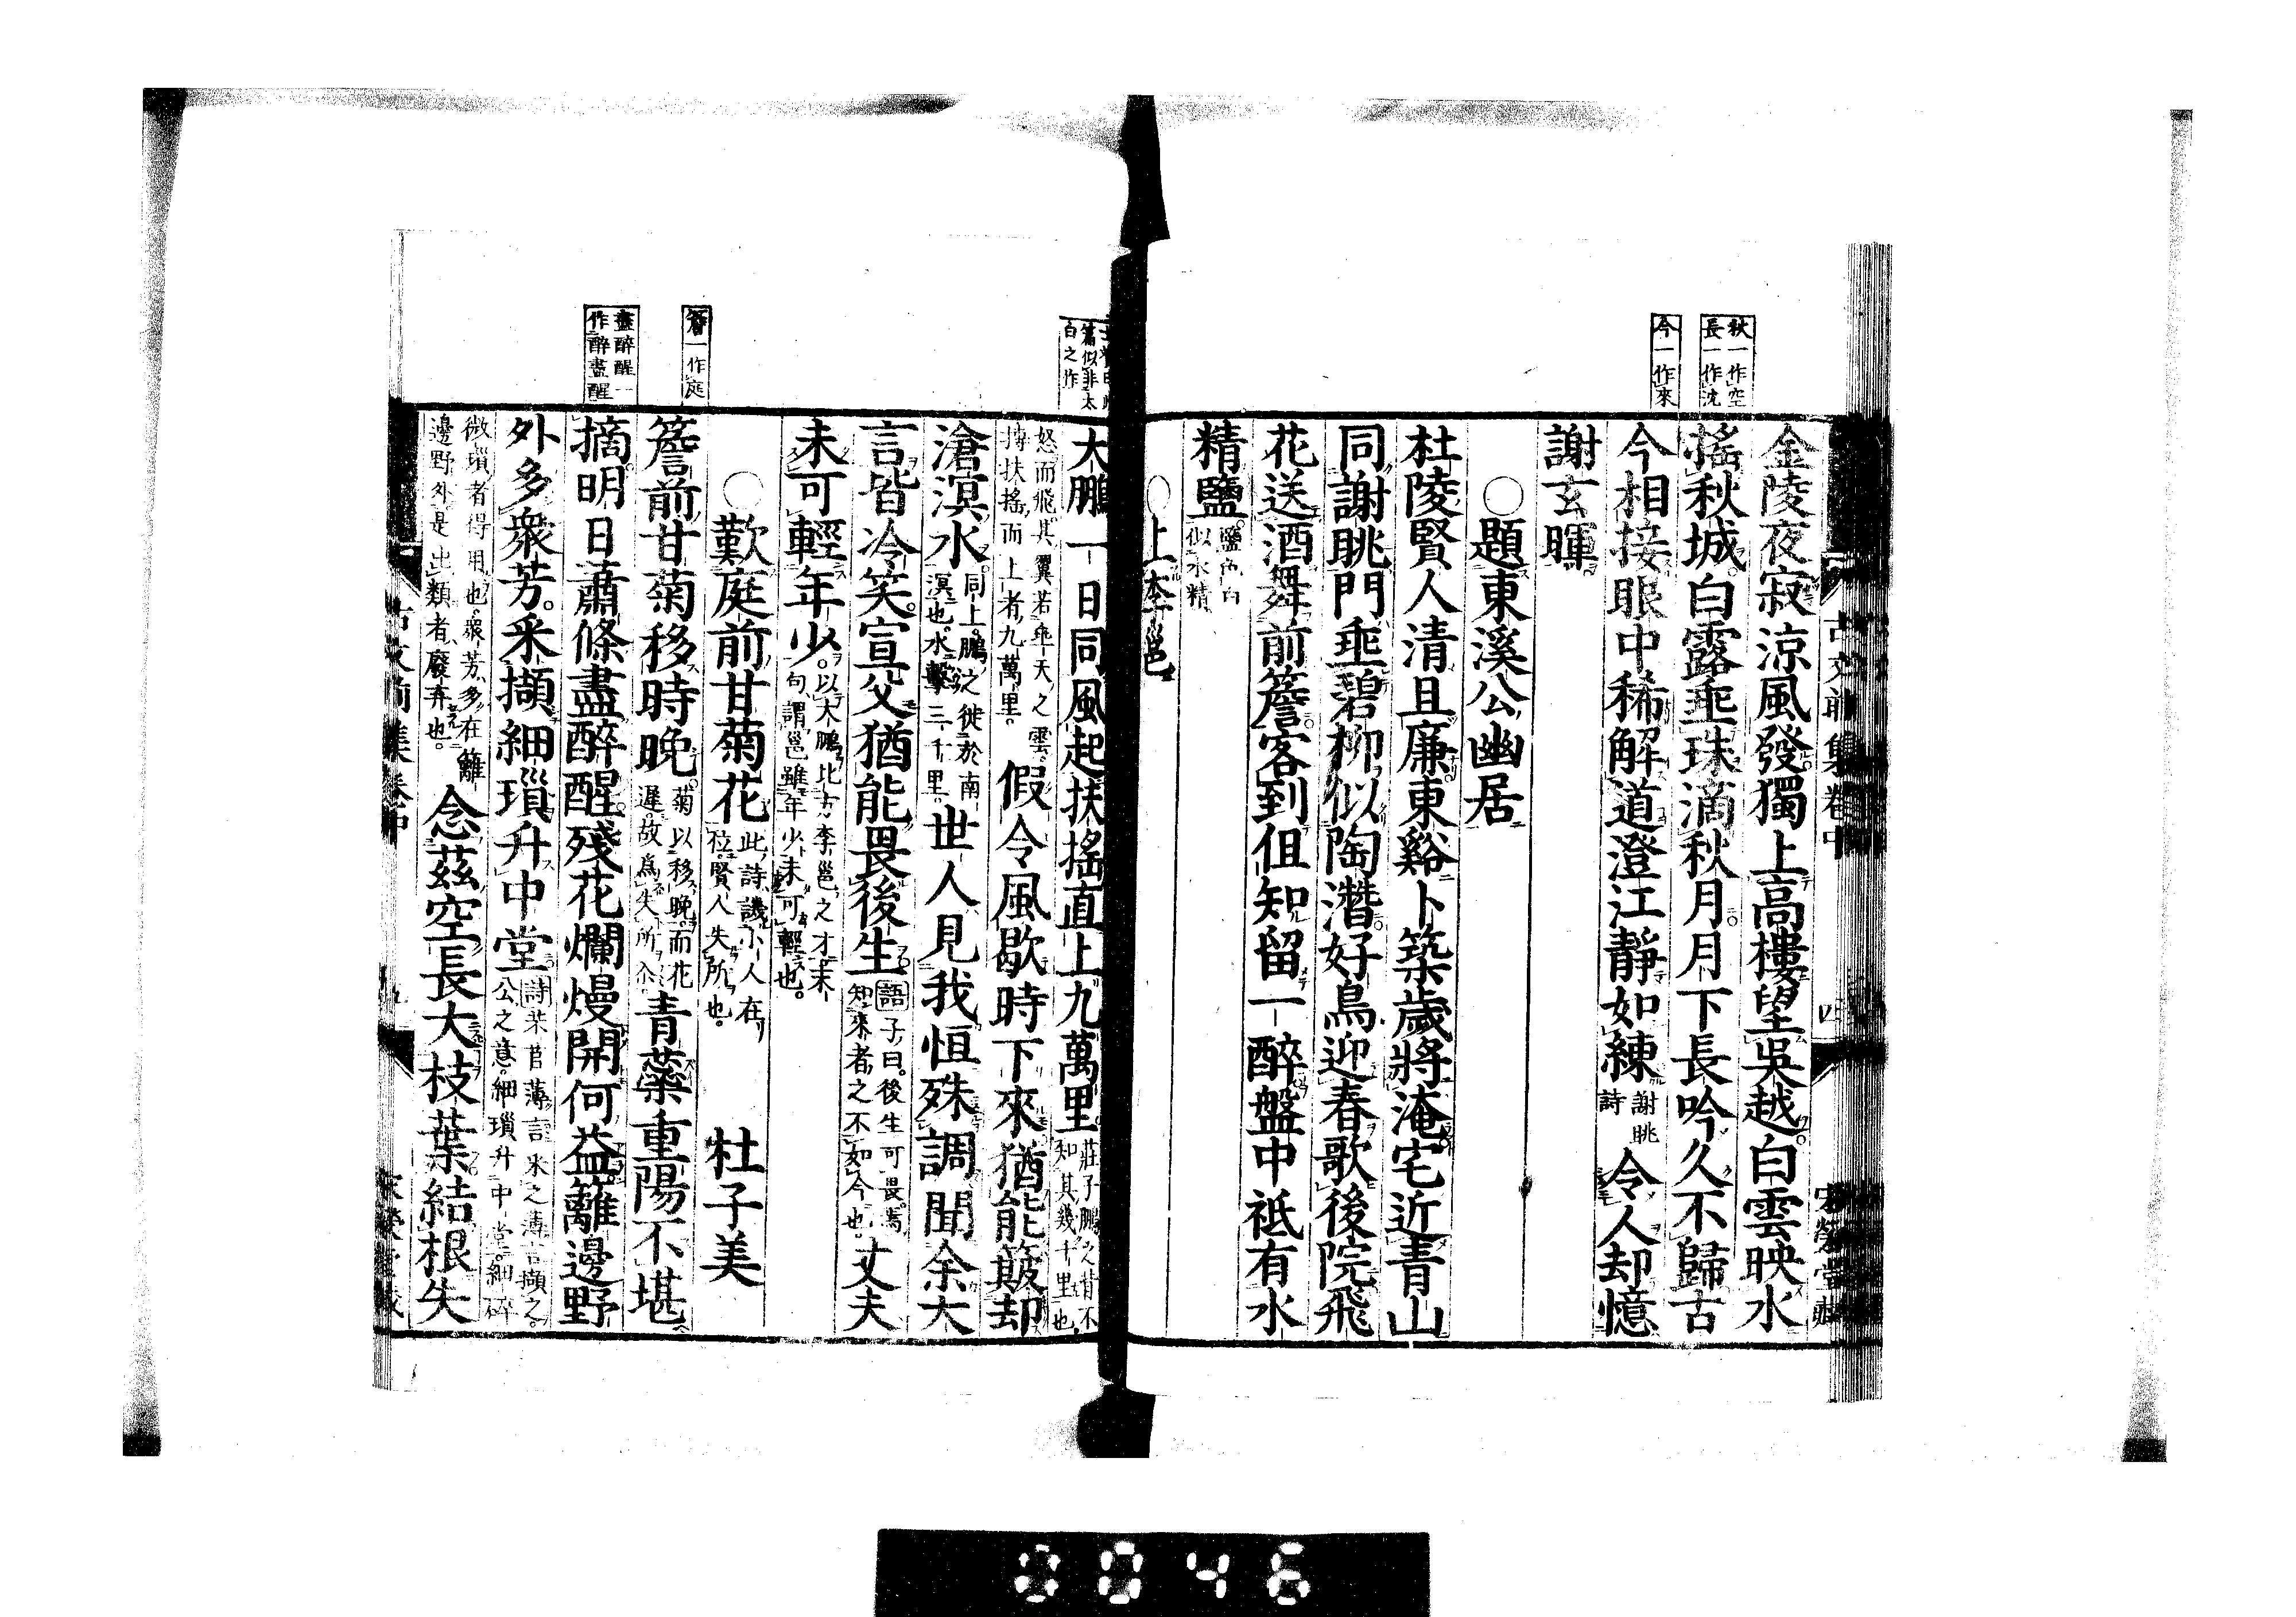 秋一作空
長一作沈
今一作來
金陵夜寂涼風發獨上高樓望吳越白雲映水
搖秋城白露垂珠滴秋月月下長吟久不歸古
今相接眼中稀解道澄江靜如練謝眺詩令人却憶
謝玄暉
○題東溪公幽居
杜陵賢人清且廉東谿卜築歲將淹宅近青山
同謝眺門垂碧柳似陶潛好鳥迎春歌後院飛
花送酒舞前簷客到但知留一醉盤中祗有水
精鹽鹽色白似水精
○上李邕
古文前集卷中
四
篇似非太
白之作
簷一作庭
盡醉醒一
作醉盡醒
大鵬一日同風起扶搖直上九萬里莊子鵬之背不知其幾千里也
怒而飛其翼若垂天之雲
摶扶搖而上者九萬里。假令風歇時下來猶能簸却
滄溟水同上。鵬之徙於南溟也。水擊三千里。世人見我恒殊調聞余大
言皆冷笑。宣父猶能畏後生語子曰。後生可畏。焉知來者之不如今也。丈夫
未可輕年少。以大鵬比方李邕之才末句謂邕雖年少未可輕也。
○歎庭前甘菊花此詩譏小人在位賢人失所也。杜子美
簷前甘菊移時晚菊以移晚。而花遲。故爲失所。青蘂重陽不堪
摘明日蕭條盡醉醒殘花爛熳開何益籬邊野
外多衆芳。采擷細瑣升中堂詩芣苢薄言采之薄言擷之。公之意。細瑣升中堂。細碎
微瑣者得用也。衆芳多在籬
邊野外是出類者廢弃也。念茲空長大枝葉結根失
古文前集卷中